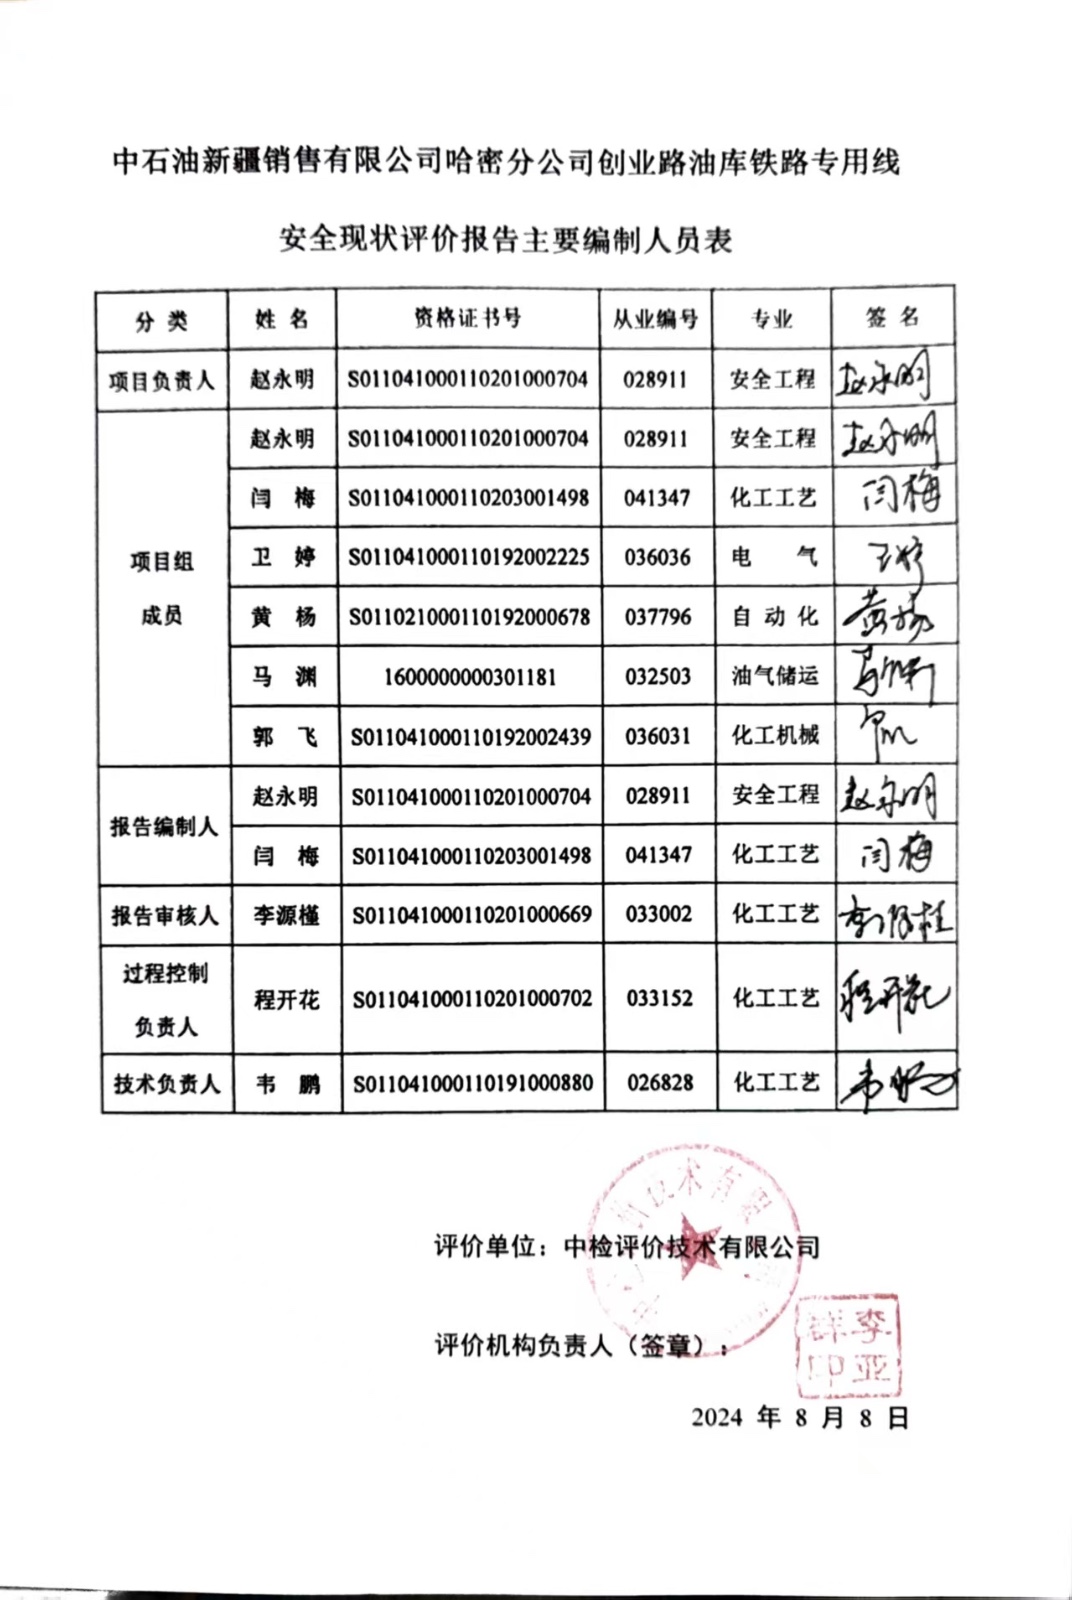 中石油新疆销售有限公司哈密分公司创业路油库铁路专用线
安全现状评价报告主要编制人员表
分 类 姓 名 资格证书号 从业编号 专业 签 名
项目负责人 赵永明 S011041000110201000704 028911 安全工程 赵永明
项目组
成员
赵永明 S011041000110201000704 028911 安全工程 赵永明
闫 梅 S011041000110203001498 041347 化工工艺 闫梅
卫 婷 S011041000110192002225 036036 电 气
黄 杨 S011021000110192000678 037796 自 动 化 黄杨
马 渊 1600000000301181 032503 油气储运 马渊
郭 飞 S011041000110192002439 036031 化工机械
报告编制人
赵永明 S011041000110201000704 028911 安全工程 赵永明
闫 梅 S011041000110203001498 041347 化工工艺 闫梅
报告审核人 李源槿 S011041000110201000669 033002 化工工艺
过程控制
负责人
程开花 S011041000110201000702 033152 化工工艺 程开花
技术负责人 韦 鹏 S011041000110191000880 026828 化工工艺 韦鹏
评价单位：中检评价技术有限公司
评价机构负责人（签章）：
李亚群印
2024 年 8 月 8 日